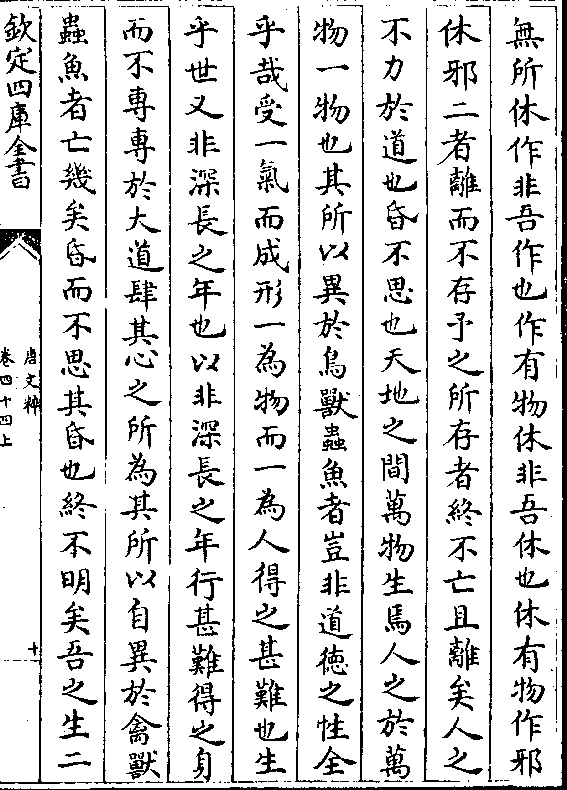 無所休作非吾作也作有物休非吾休也休有物作邪
休邪二者離而不存予之所存者終不亡且離矣人之
不力於道也昏不思也天地之間萬物生焉人之於萬
物一物也其所以異於鳥獸蟲魚者豈非道徳之性全
乎哉受一氣而成形一為物而一為人得之甚難也生
乎世又非深長之年也以非深長之年行甚難得之身
而不専専於大道肆其心之所為其所以自異於禽獸
蟲魚者亡幾矣昏而不思其昏也終不明矣吾之生二
欽定四庫全書
唐文粹
卷四十四上
十